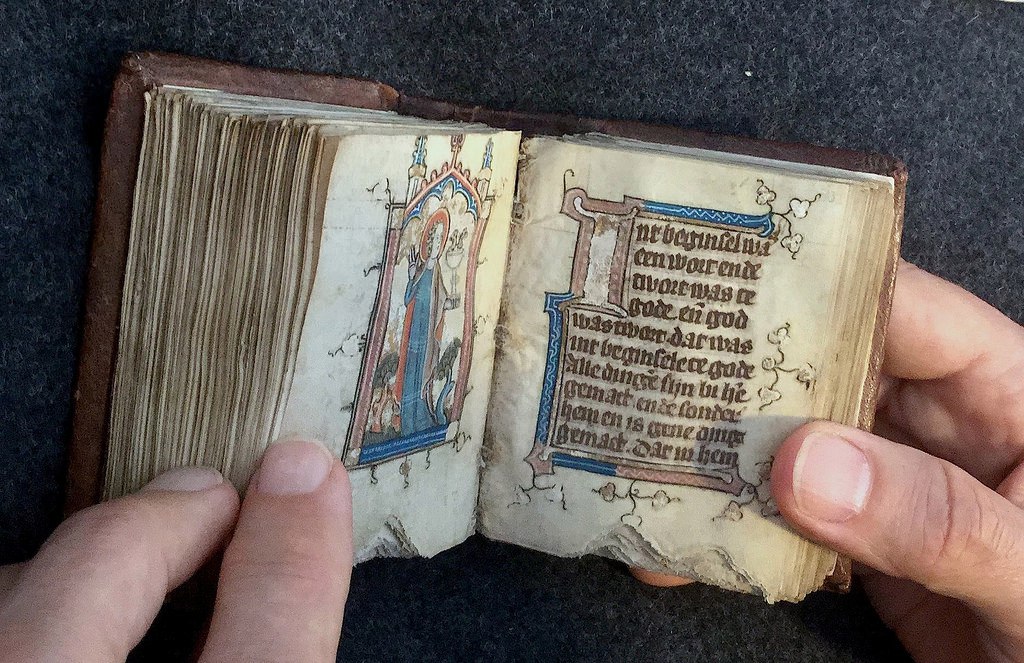 Int beginsel wa
een wort ende
twort was te
gode. en̄ god
was twort. dat was
int beginsele te gode
Alle dingē sijn bi hē
gemact ende sonder
hem en is gene dinge
gemact. Dat in hem